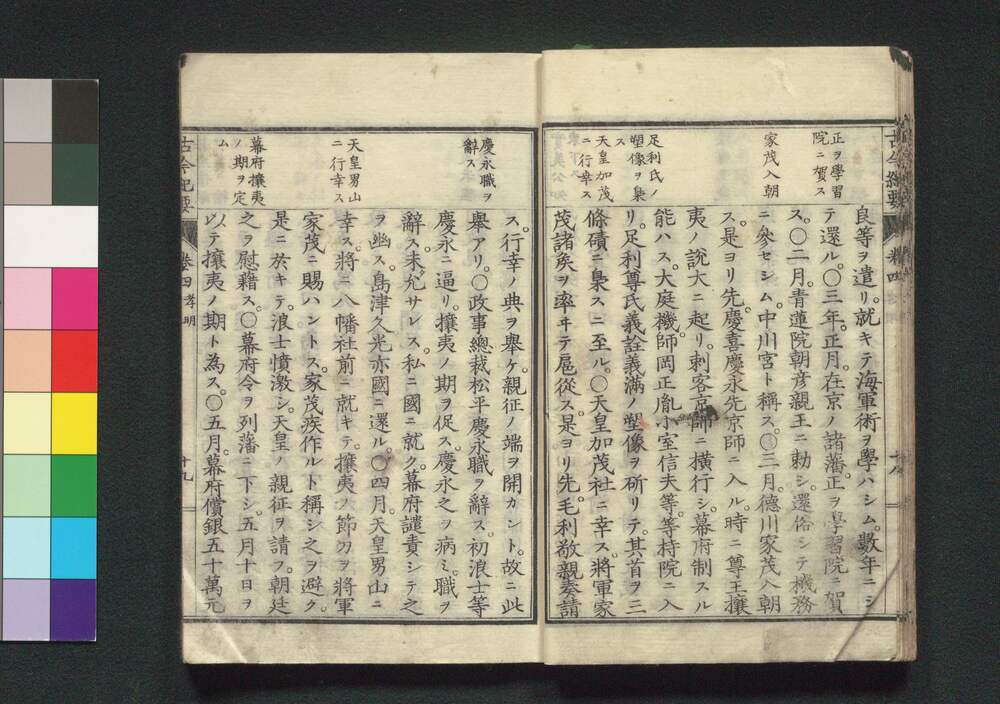 正ヲ學習
院ニ賀ス
家茂入朝
足利氏ノ
塑像ヲ梟
ス
天皇加茂
ニ行幸ス
良等ヲ遣リ就キテ海軍術ヲ學ハシム。數年ニシ
テ還ル。〇三年。正月。在京ノ諸藩正ヲ學習院ニ賀
ス。〇二月。青蓮院朝彦親王ニ勅シ。還俗シテ機務
ニ參セシム。中川宮ト稱ス。〇三月。德川家茂入朝
ス。是ヨリ先。慶喜慶永先京師ニ入ル。時ニ尊王攘
夷ノ說大ニ起リ。刺客京師ニ橫行シ。幕府制スル
能ハス。大庭機師岡正胤小室信夫等。等持院ニ入
リ。足利尊氏義詮義滿ノ塑像ヲ斫リテ。其首ヲ三
條磧ニ梟スニ至ル。〇天皇加茂社ニ幸ス。將軍家
茂諸矦ヲ率ヰテ扈從ス。是ヨリ先。毛利敬親奏請
慶永職ヲ
辭ス
天皇男山
ニ行幸ス
幕府攘夷
ノ期ヲ定
ム
ス。行幸ノ典ヲ舉ケ。親征ノ端ヲ開カント。故ニ此
舉アリ。〇政事總裁松平慶永職ヲ辭ス。初浪士等
慶永ニ逼リ。攘夷ノ期ヲ促ス。慶永之ヲ病ミ。職ヲ
辭ス。未允サレス。私ニ國ニ就ク。幕府譴責シテ之
ヲ幽ス。島津久光亦國ニ還ル。〇四月。天皇男山ニ
幸ス。將ニ八幡社前ニ就キテ。攘夷ノ節刀ヲ將軍
家茂ニ賜ハントス。家茂疾作ルト稱シ之ヲ避ク。
是ニ於キテ。浪士憤激シ。天皇ノ親征ヲ請フ。朝廷
之ヲ慰藉ス。〇幕府令ヲ列藩ニ下シ。五月十日ヲ
以テ攘夷ノ期ト為ス。〇五月。幕府償銀五十萬元
古今紀要
卷四孝明
十九